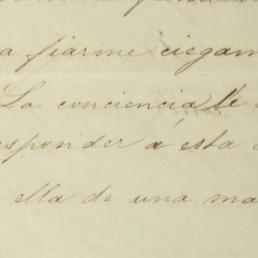 a fiarme ciegam
La conciencia le
esponder á esta
ella de una ma